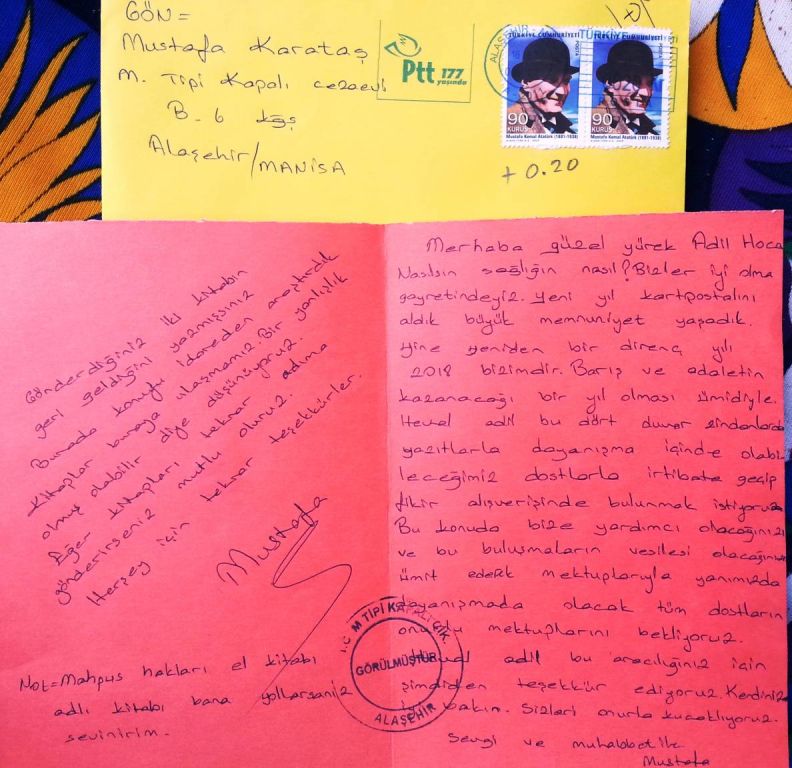 GÖN=
Mustafa Karataş
M. Tipi Kapalı cezaevi
B-6 kğş
Alaşehir/MANİSA
Ptt 177
yaşında
ALAŞEHİR
TÜRKİYE CUMHURİYETİ
POSTA
90
KURUŞ
Mustafa Kemal Atatürk (1881-1938)
TÜRKİYE CUMHURİYETİ
POSTA
90
KURUŞ
Mustafa Kemal Atatürk (1881-1938)
+ 0.20
Gönderdiğiniz iki kitabın
geri geldiğini yazmışsınız
Burada konuyu idareden araştırdık
kitaplar buraya ulaşmamız. Bir yanlışlık
olmuş olabilir diye düşünüyoruz.
Eğer kitapları tekrar adıma
gönderirseniz mutlu oluruz.
Herşey için tekrar teşekkürler.
Mustafa
Not=Mahpus hakları el kitabı
adlı kitabı bana yollarsanız
sevinirim.
Merhaba güzel yürek Adil Hoca
Nasılsın sağlığın nasıl? Bizler iyi olma
gayretindeyiz. Yeni yıl kartpostalını
aldık büyük memnuniyet yaşadık.
Yine yeniden bir direnç yılı
2018 bizimdir. Barış ve adaletin
kazanacağı bir yıl olması ümidiyle.
Heval adil bu dört duvar zindanlarda
yazıtlarla dayanışma içinde olabi
leceğimiz dostlarla irtibata geçip
fikir alışverişinde bulunmak istiyoruz
Bu konuda bize yardımcı olacağınızı
ve bu buluşmaların vesilesi olacağınızı
ümit ederek mektuplarıyla yanımızda
dayanışmada olacak tüm dostların
onurlu mektuplarını bekliyoruz.
Heval adil bu aracılığınız için
şimdiden teşekkür ediyoruz. Kendinize
iyi bakın. Sizleri onurla kucaklıyoruz.
Sevgi ve muhabbetle
Mustafa
T.C. M TİPİ KAPALI C.İK.
GÖRÜLMÜŞTÜR
ALAŞEHİR